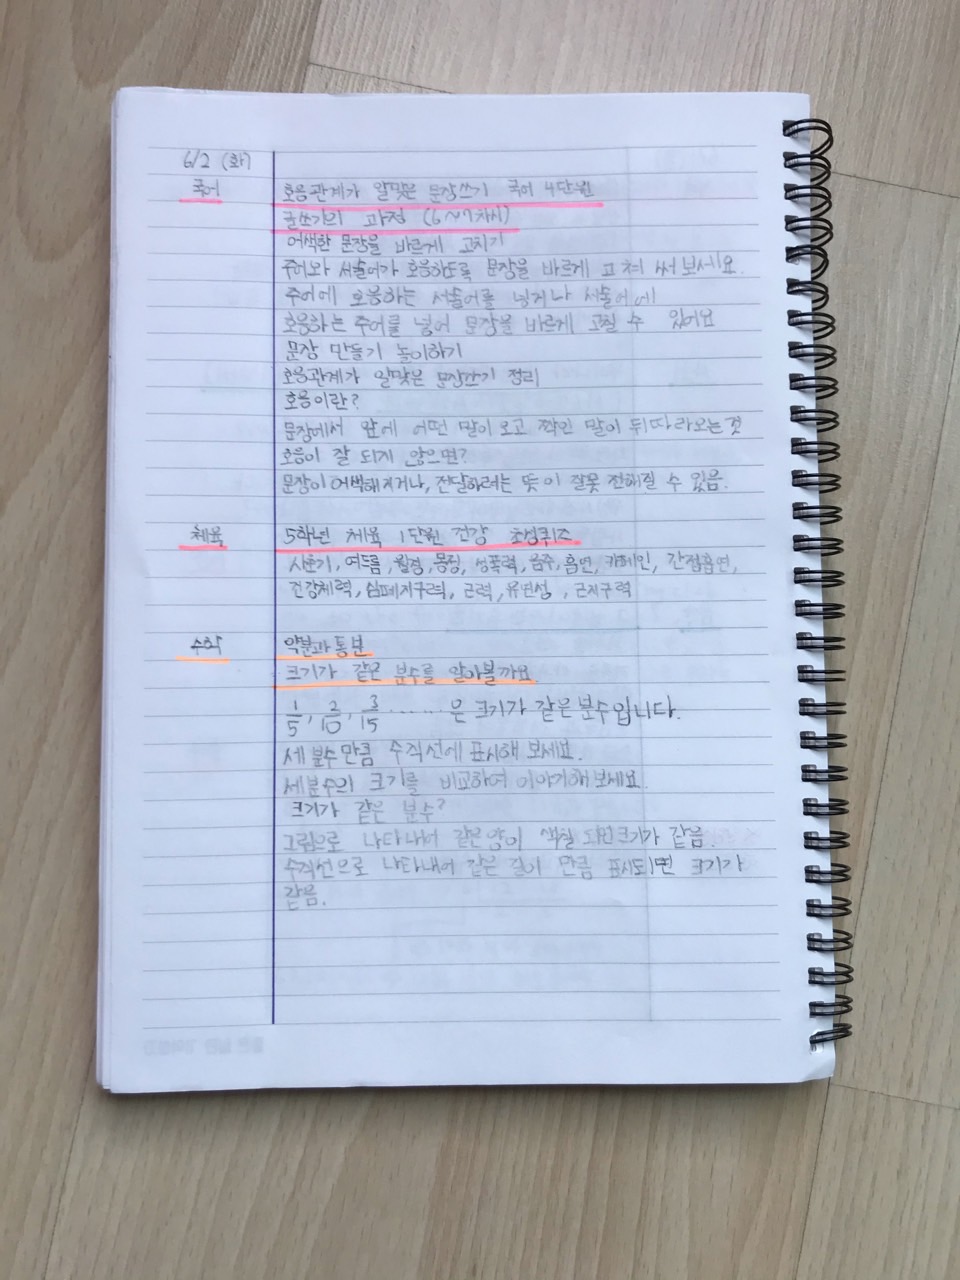 6/2 (화)
국어
호응관계가 알맞은 문장쓰기 국어 4단원
글쓰기의 과정 (6~7차시)
어색한 문장을 바르게 고치기
주어와 서술어가 호응하도록 문장을 바르게 고쳐 써 보세요.
주어에 호응하는 서술어를 넣거나 서술어에
호응하는 주어를 넣어 문장을 바르게 고칠 수 있어요
문장 만들기 놀이하기
호응관계가 알맞은 문장쓰기 정리
호응이란?
문장에서 앞에 어떤 말이 오고 짝인 말이 뒤따라오는 것
호응이 잘 되지 않으면?
문장이 어색해지거나, 전달하려는 뜻이 잘못 전해질 수 있음.
체육
5학년 체육 1단원 건강 초성퀴즈
사춘기, 여드름, 월경, 몽정, 성폭력, 음주, 흡연, 카페인, 간접흡연,
건강체력, 심폐지구력, 근력, 유연성, 근지구력
수학
약분과 통분
크기가 같은 분수를 알아볼까요
1/5, 2/10, 3/15 ....... 은 크기가 같은 분수입니다.
세 분수만큼 수직선에 표시해 보세요.
세분수의 크기를 비교하여 이야기해보세요.
크기가 같은 분수?
그림으로 나타내어 같은양이 색칠 되면크기가 같음.
수직선으로 나타내어 같은 길이 만큼 표시되면 크기가
같음.